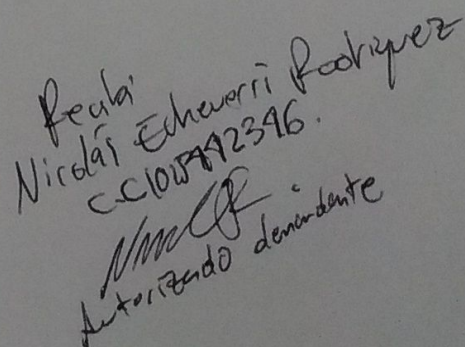 Recibí
Nicolás Echeverri Rodriguez
Autorizado demandante